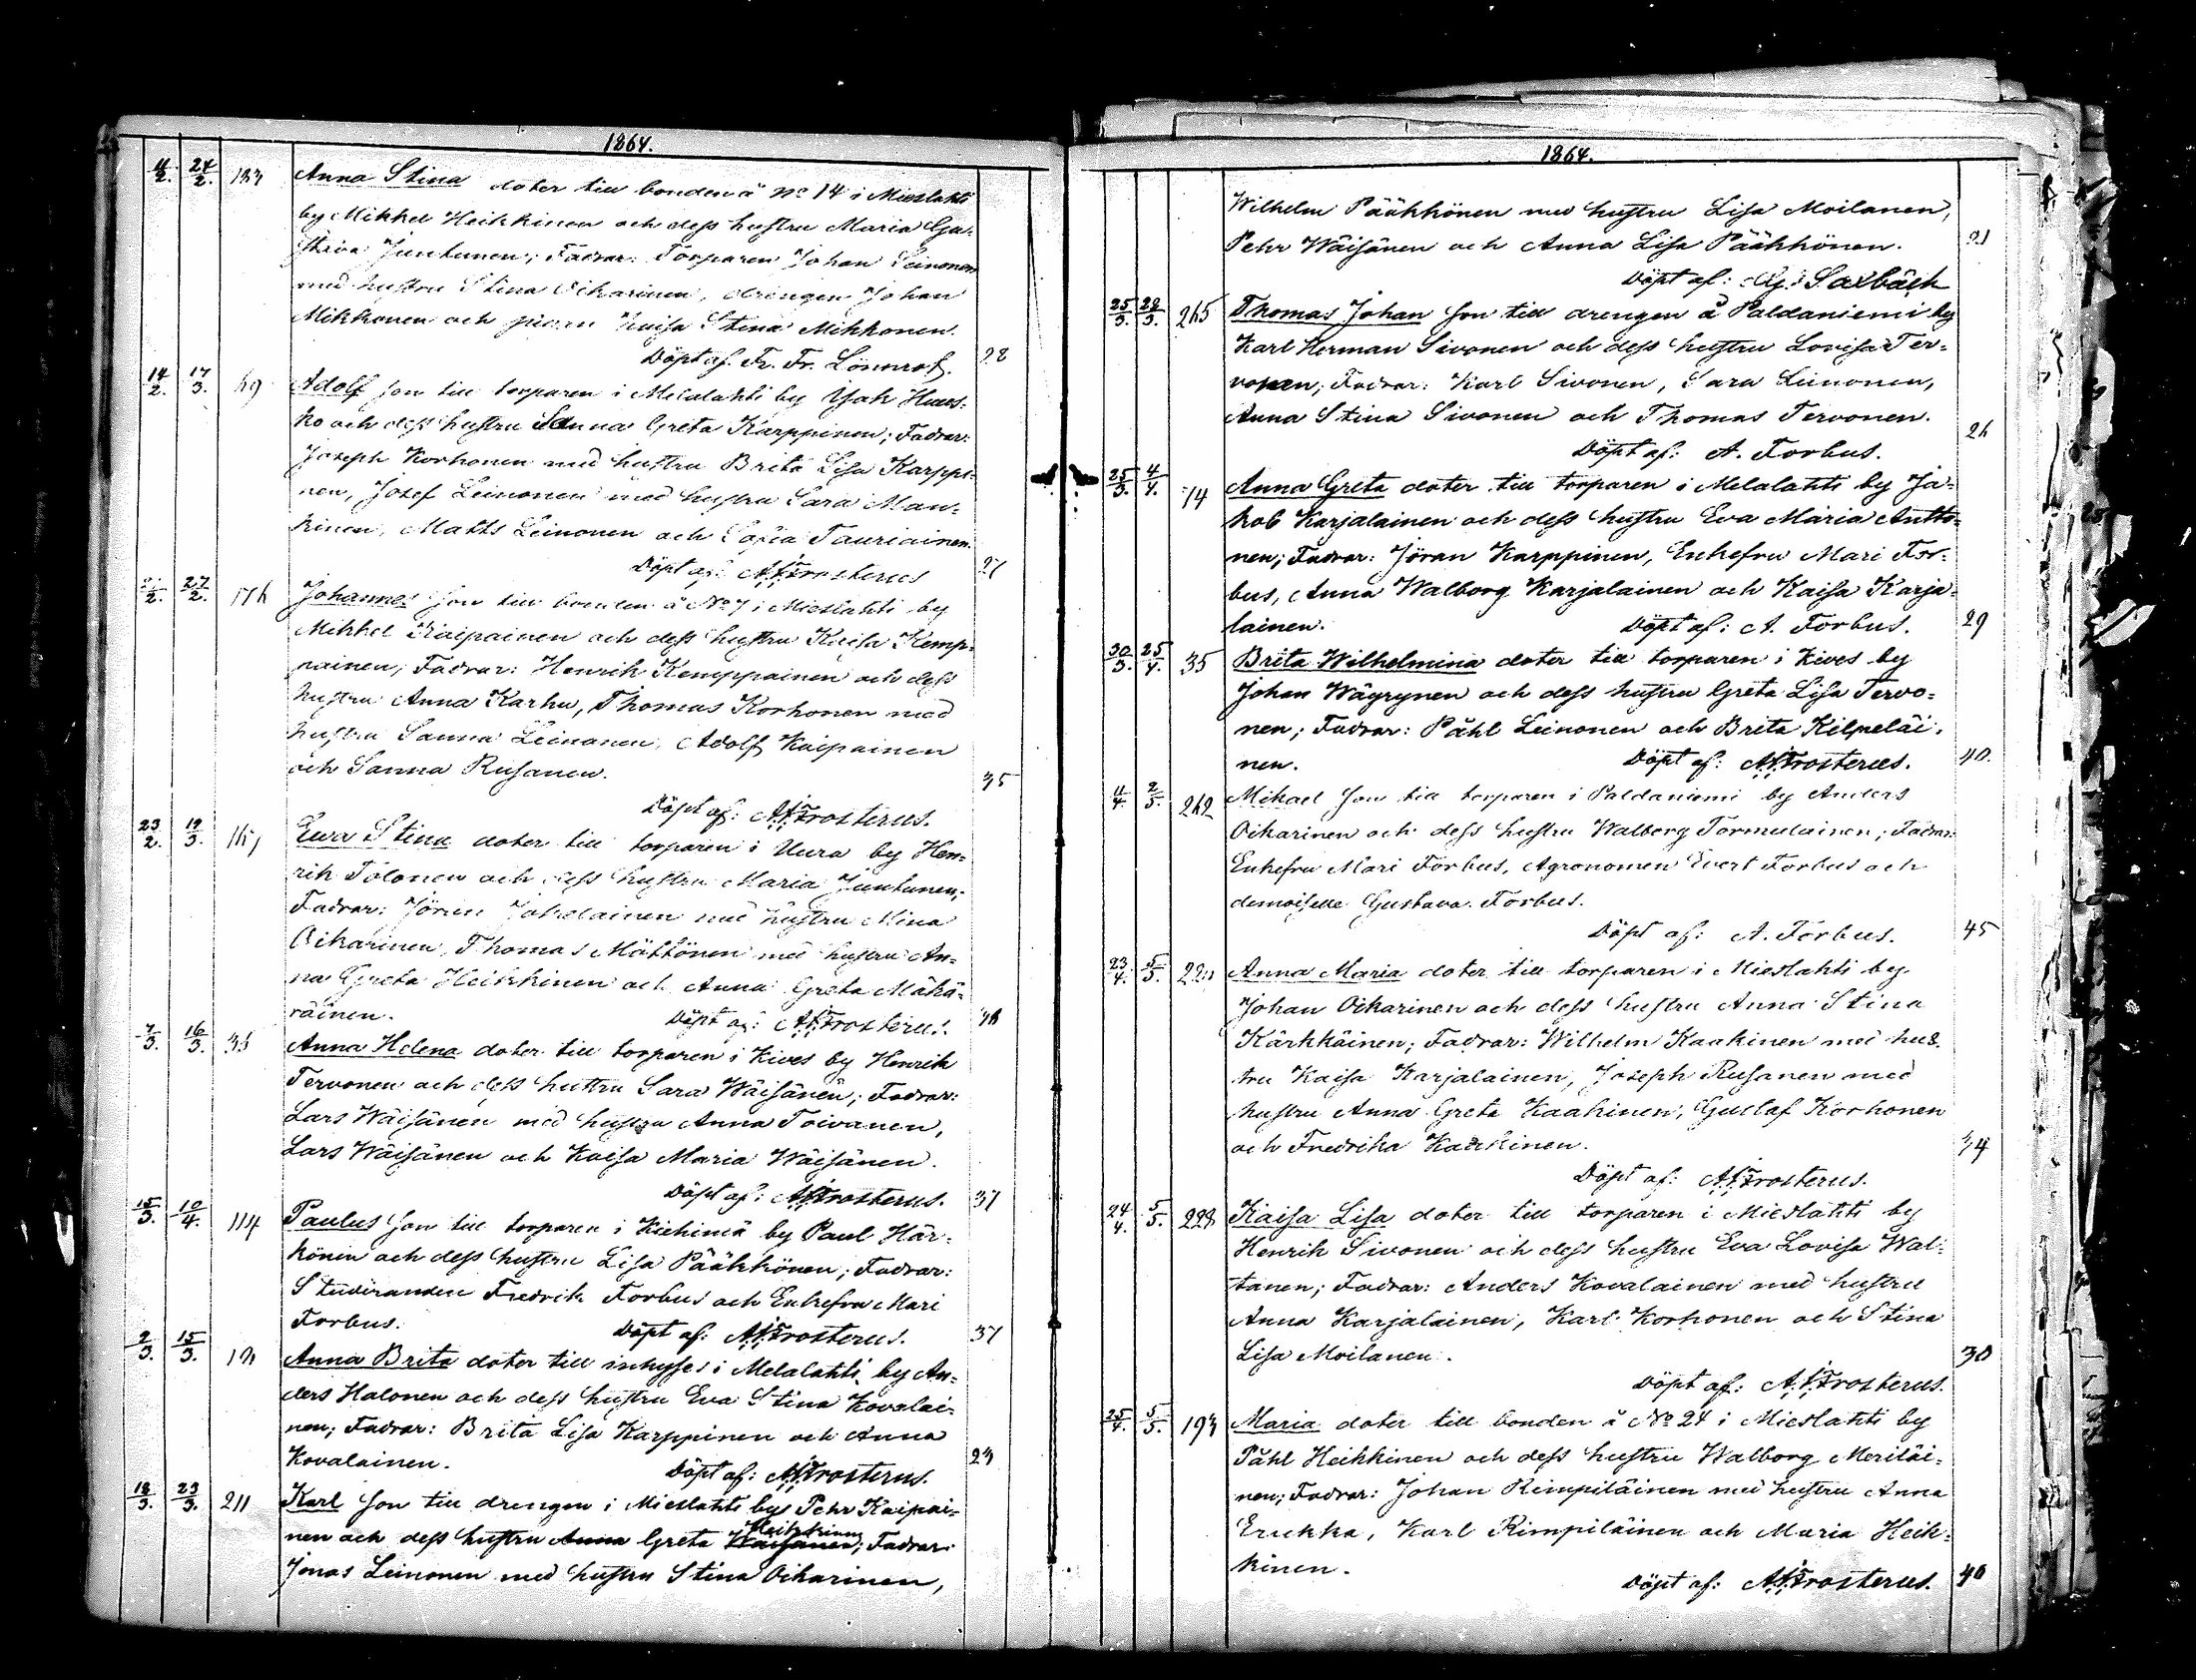 1864.
11/2. 24/2. 183 Anna Stina doter till bonden å No 14 i Mieslahti
by Mikkel Heikkinen och dess hustru Maria Gu-
stava Juntunen; Fadrar: Torparen Johan Leinonen
med hustru Stina Oikarinen, drengen Johan
Mikkonen och pigan Kaisa Stina Mikkonen.
Döpt af. Fr. Fr. Lönnrot. 28
14/2. 17/3. 69 Adolf son till torparen i Melalahti by Isak Huus-
ko och dess hustru Sanna Greta Karppinen; Fadrar:
Joseph Korhonen med hustru Brita Lisa Karppi-
nen, Josef Leinonen med hustru Sara Man-
kinen, Matts Leinonen och Sofia Tauriainen.
Döpt af: A.F. Frosterus 27
27/2. Johannes son till bonden å No 7 i Mieslahti by
Mikkel Kaipainen och dess hustru Kaisa Kemp-
painen; Fadrar: Henrik Kemppainen och dess
hustru Anna Karhu, Thomas Korhonen med
hustru Sanna Leinonen, Adolf Kaipainen
och Sanna Rusanen. 35
Döpt af: A.F. Frosterus.
23/2. 19/3. Ewa Stina doter till torparen i Uura by Hen-
rik Tolonen och dess hustru Maria Juntunen;
Fadrar: Jöran Jokelainen med hustru Mina
Oikarinen, Thomas Möttönen med hustru An-
na Greta Heikkinen och Anna Greta Mäkä-
räinen. Döpt af: A.F. Frosterus.
7/3. 16/3. 35 Anna Helena doter till torparen i Kives by Henrik
Tervonen och dess hustru Sara Wäisänen; Fadrar:
Lars Wäisänen med hustru Anna Toivanen,
Lars Wäisänen och Kaisa Maria Wäisänen.
Döpt af: A.F. Frosterus. 37
15/3. 10/4. 114 Paulus son till torparen i Kiehimä by Paul Här-
könen och dess hustru Lisa Pääkkönen; Fadrar:
Studeranden Fredrik Forbus och Enkefru Mari
Forbus. Döpt af: A.F. Frosterus. 37
2/3. 15/3. Anna Brita doter till inhyses i Melalahti by An-
ders Halonen och dess hustru Eva Stina Kovalai-
nen; Fadrar: Brita Lisa Karppinen och Anna
Kovalainen. Döpt af: A.F. Frosterus. 23
18/3. 23/3. 211 Karl son till drengen i Mieslahti by Pehr Kaipai-
nen och dess hustru Anna Greta Wäisänen Heikkinen; Fadrar:
Jonas Leinonen med hustru Stina Oikarinen,
1864.
Wilhelm Pääkkönen med hustru Lisa Moilanen,
Pehr Wäisänen och Anna Lisa Pääkkönen. 21
Döpt af: G. Saxbäck
25/3. 28/3. 265 Thomas Johan son till drengen å Paldaniemi by
Karl Herman Sivonen och dess hustru Lovisa Ter-
vonen; Fadrar: Karl Sivonen, Sara Leinonen,
Anna Stina Sivonen och Thomas Tervonen. 26
Döpt af: A. Forbus.
25/3. 4/4. 74 Anna Greta doter till torparen i Melalahti by Ja-
kob Karjalainen och dess hustru Eva Maria Antto-
nen; Fadrar: Jöran Karppinen, Enkefru Mari For-
bus, Anna Walborg Karjalainen och Kaisa Karja-
lainen. Döpt af: A. Forbus. 29
30/3. 25/4. 35 Brita Wilhelmina doter till torparen i Kives by
Johan Wäyrynen och dess hustru Greta Lisa Tervo-
nen; Fadrar: Påhl Leinonen och Brita Kilpeläi-
nen. Döpt af: A.F. Frosterus. 40.
11/4. 2/5. 262 Mikael son till torparen i Paldaniemi by Anders
Oikarinen och dess hustru Walborg Tormulainen; Fadrar:
Enkefru Mari Forbus, Agronomen Evert Forbus och
demoiselle Gustava Forbus.
Döpt af: A. Forbus. 45
23/4. 5/5. Anna Maria doter till torparen i Mieslahti by
Johan Oikarinen och dess hustru Anna Stina
Kärkkäinen; Fadrar: Wilhelm Kaakinen med hus-
tru Kaisa Karjalainen, Joseph Rusanen med
hustru Anna Greta Kaakinen, Gustaf Korhonen
och Fredrika Kaakinen. 34
Döpt af: A.F. Frosterus.
24/4. 5/5. 228 Kaisa Lisa doter till torparen i Mieslahti by
Henrik Sivonen och dess hustru Eva Lovisa Wal-
tanen; Fadrar: Anders Kovalainen med hustru
Anna Karjalainen, Karl Korhonen och Stina
Lisa Moilanen. 30
Döpt af: A.F. Frosterus.
25/4. 5/5. 193 Maria doter till bonden å No 24 i Mieslahti by
Påhl Heikkinen och dess hustru Walborg Meriläi-
nen; Fadrar: Johan Rimpiläinen med hustru Anna
Erukka, Karl Rimpiläinen och Maria Heik-
kinen.
Döpt af: A.F. Frosterus. 40